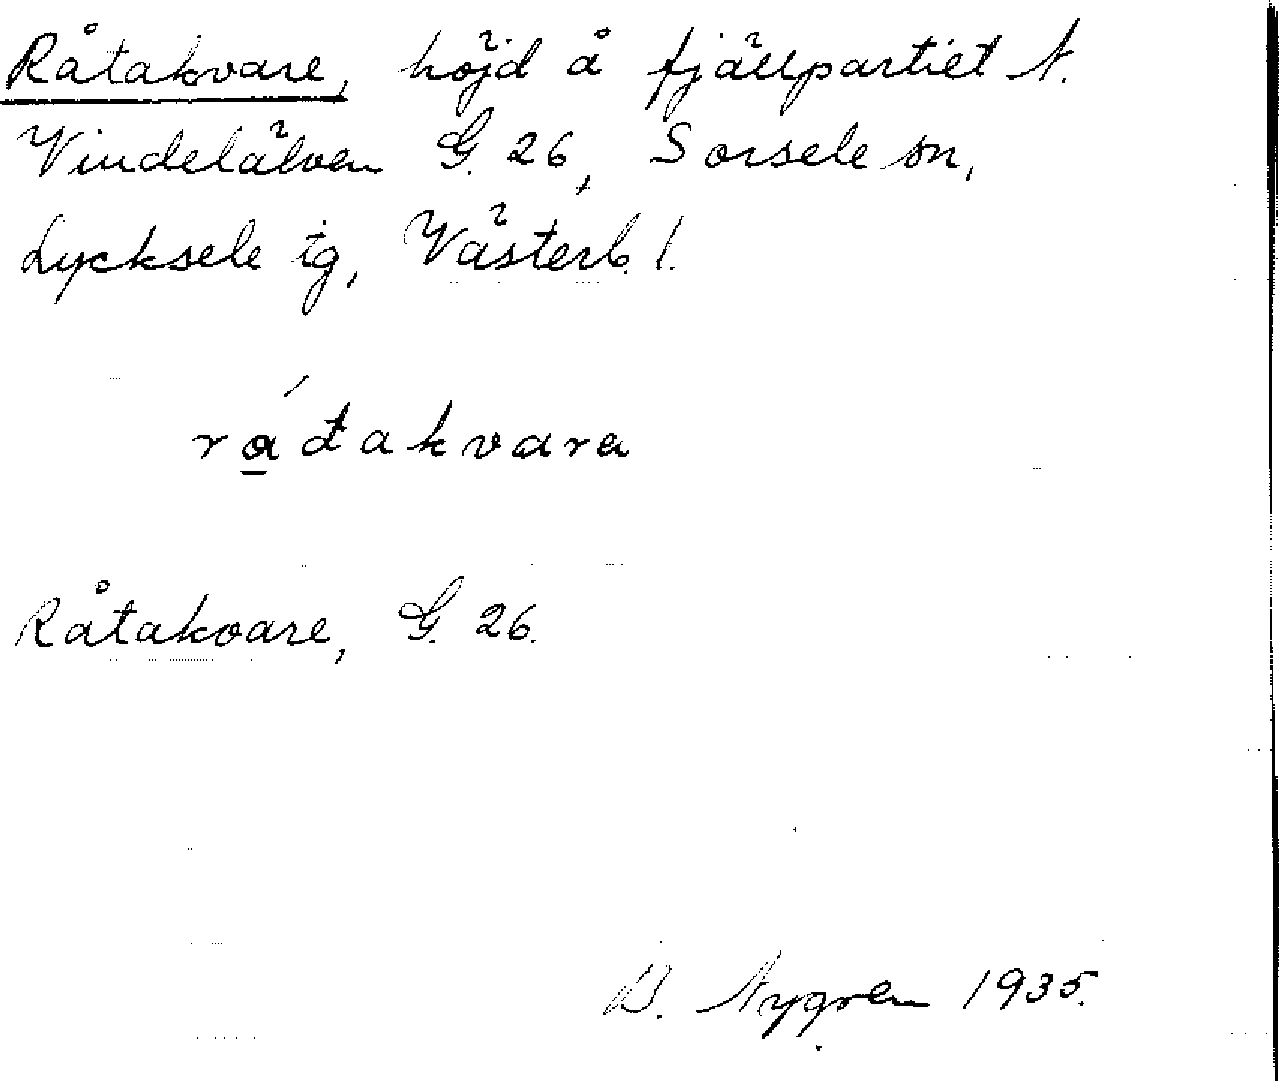 Råtakvare, höjd å fjällpartiet N.
Vindelälven G. 26, Sorsele sn,
Lycksele tg, Västerb. l.
rá̱đakvara
Råtakvare, G. 26.
B. Nygren 1935.